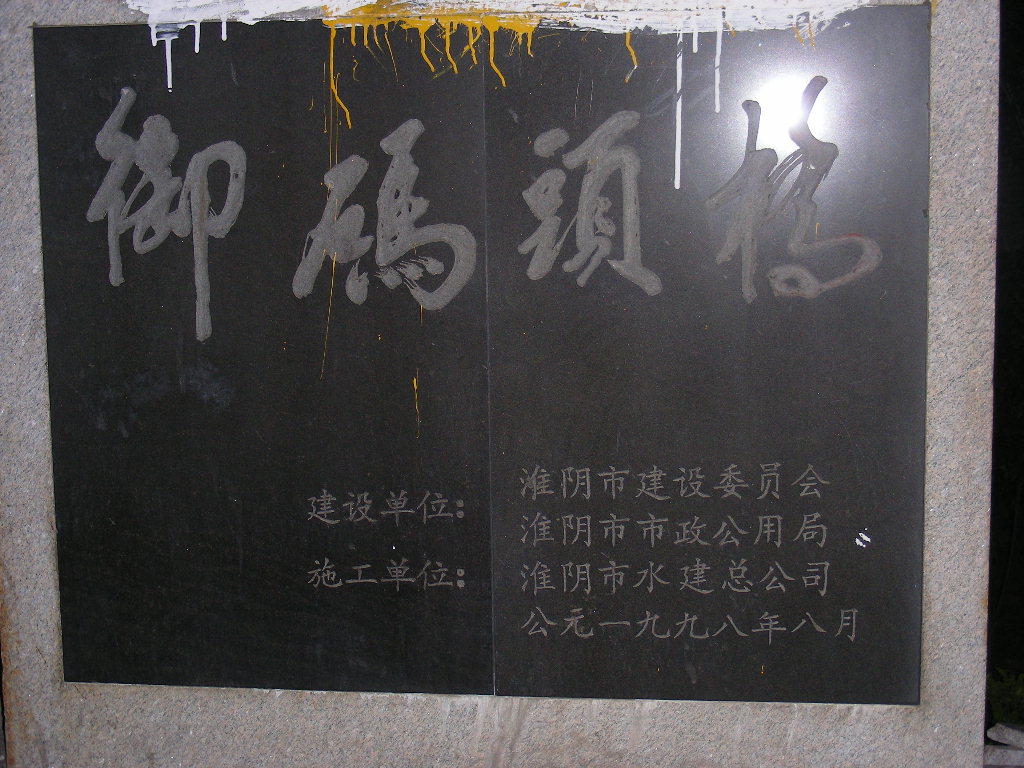 御碼頭橋
建设单位: 淮阴市建设委员会
淮阴市市政公用局
施工单位: 淮阴市水建总公司
公元一九九八年八月